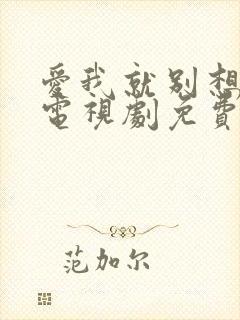 愛我就別想
電視劇免費
范加尔